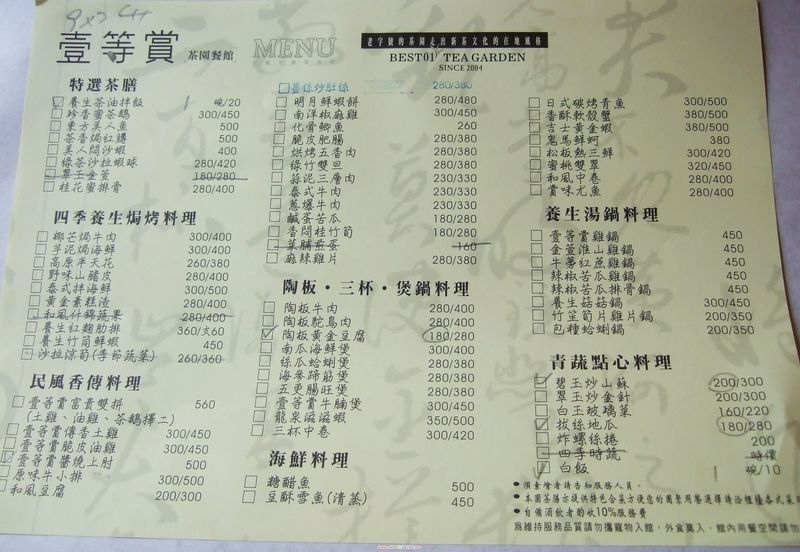 壹等賞 茶園餐館 MENU
老字號的茶園走出新茶文化的在地風格
BEST01 TEA GARDEN
SINCE 2004
特選茶膳
養生茶油拌飯 1 碗/20
珍香蜜茶鵝 300/450
東方美人魚 500
茶香焗紅鱘 500
美人悶沙蝦 400
綠茶沙拉蝦球 280/420
翠玉金萱 180/280
桂花蜜排骨 280/400
四季養生焗烤料理
椰芒焗牛肉 300/400
芋泥焗海鮮 300/400
高原半天花 260/380
野味山豬皮 280/400
泰式拌海鮮 300/500
黃金素糕渣 280/400
和風什錦蔬果 280/400
養生紅麴肋排 360/560
養生竹筒鮮蝦 450
沙拉涼筍(季節蔬菜) 260/360
民風香傳料理
壹等賞富貴雙拼 560
(土雞、油雞、茶鵝擇二)
壹等賞傳香土雞 300/450
壹等賞脆皮油雞 300/450
壹等賞醬燒上肘 500
原味牛小排 300/500
和風豆腐 200/300
薑絲炒肚絲 280/380
明月鮮蝦餅 280/480
南洋椒麻雞 300/450
化骨鯽魚 260
脆皮肥腸 280/380
烘烤五香肉 280/380
綠竹雙旦 280/380
蒜泥三層肉 230/330
泰式牛肉 230/330
蔥爆牛肉 230/330
鹹蛋苦瓜 180/280
香悶桂竹筍 180/280
菜脯煎蛋 160
麻辣雞片 280/380
陶板・三杯・煲鍋料理
陶板牛肉 280/400
陶板鴕鳥肉 280/400
陶板黃金豆腐 180/280
南瓜海鮮煲 280/400
絲瓜蛤蜊煲 280/400
海參蹄筋煲 280/400
五更腸旺煲 280/400
壹等賞牛腩煲 300/450
龍泉滋滋蝦 350/500
三杯中卷 300/420
海鮮料理
糖醋魚 500
豆酥雪魚(清蒸) 450
日式碳烤青魚 300/500
香酥軟殼蟹 380/500
吉士黃金蝦 380/500
鬼馬鮮蚵 380
松板熱三鮮 300/420
蜜桃雙翠 320/450
和風中卷 280/400
賞味尤魚 280/400
養生湯鍋料理
壹等賞雞鍋 450
金萱淮山雞鍋 450
牛蒡紅蔗雞鍋 450
辣椒苦瓜雞鍋 450
辣椒苦瓜排骨鍋 450
養生菇菇鍋 300/450
竹笙筍片雞片鍋 200/350
包種蛤蜊鍋 200/350
青蔬點心料理
碧玉炒山蘇 200/300
翠玉炒金針 200/300
白玉玻璃菜 160/220
拔絲地瓜 180/280
炸螺絲捲 200
四季時蔬 時價
白飯 1 碗/10
●須素燴者請告知服務人員。
●自備酒飲者酌收10%服務費
為維持服務品質請勿攜寵物入館,外食莫入,館內用餐空間請勿